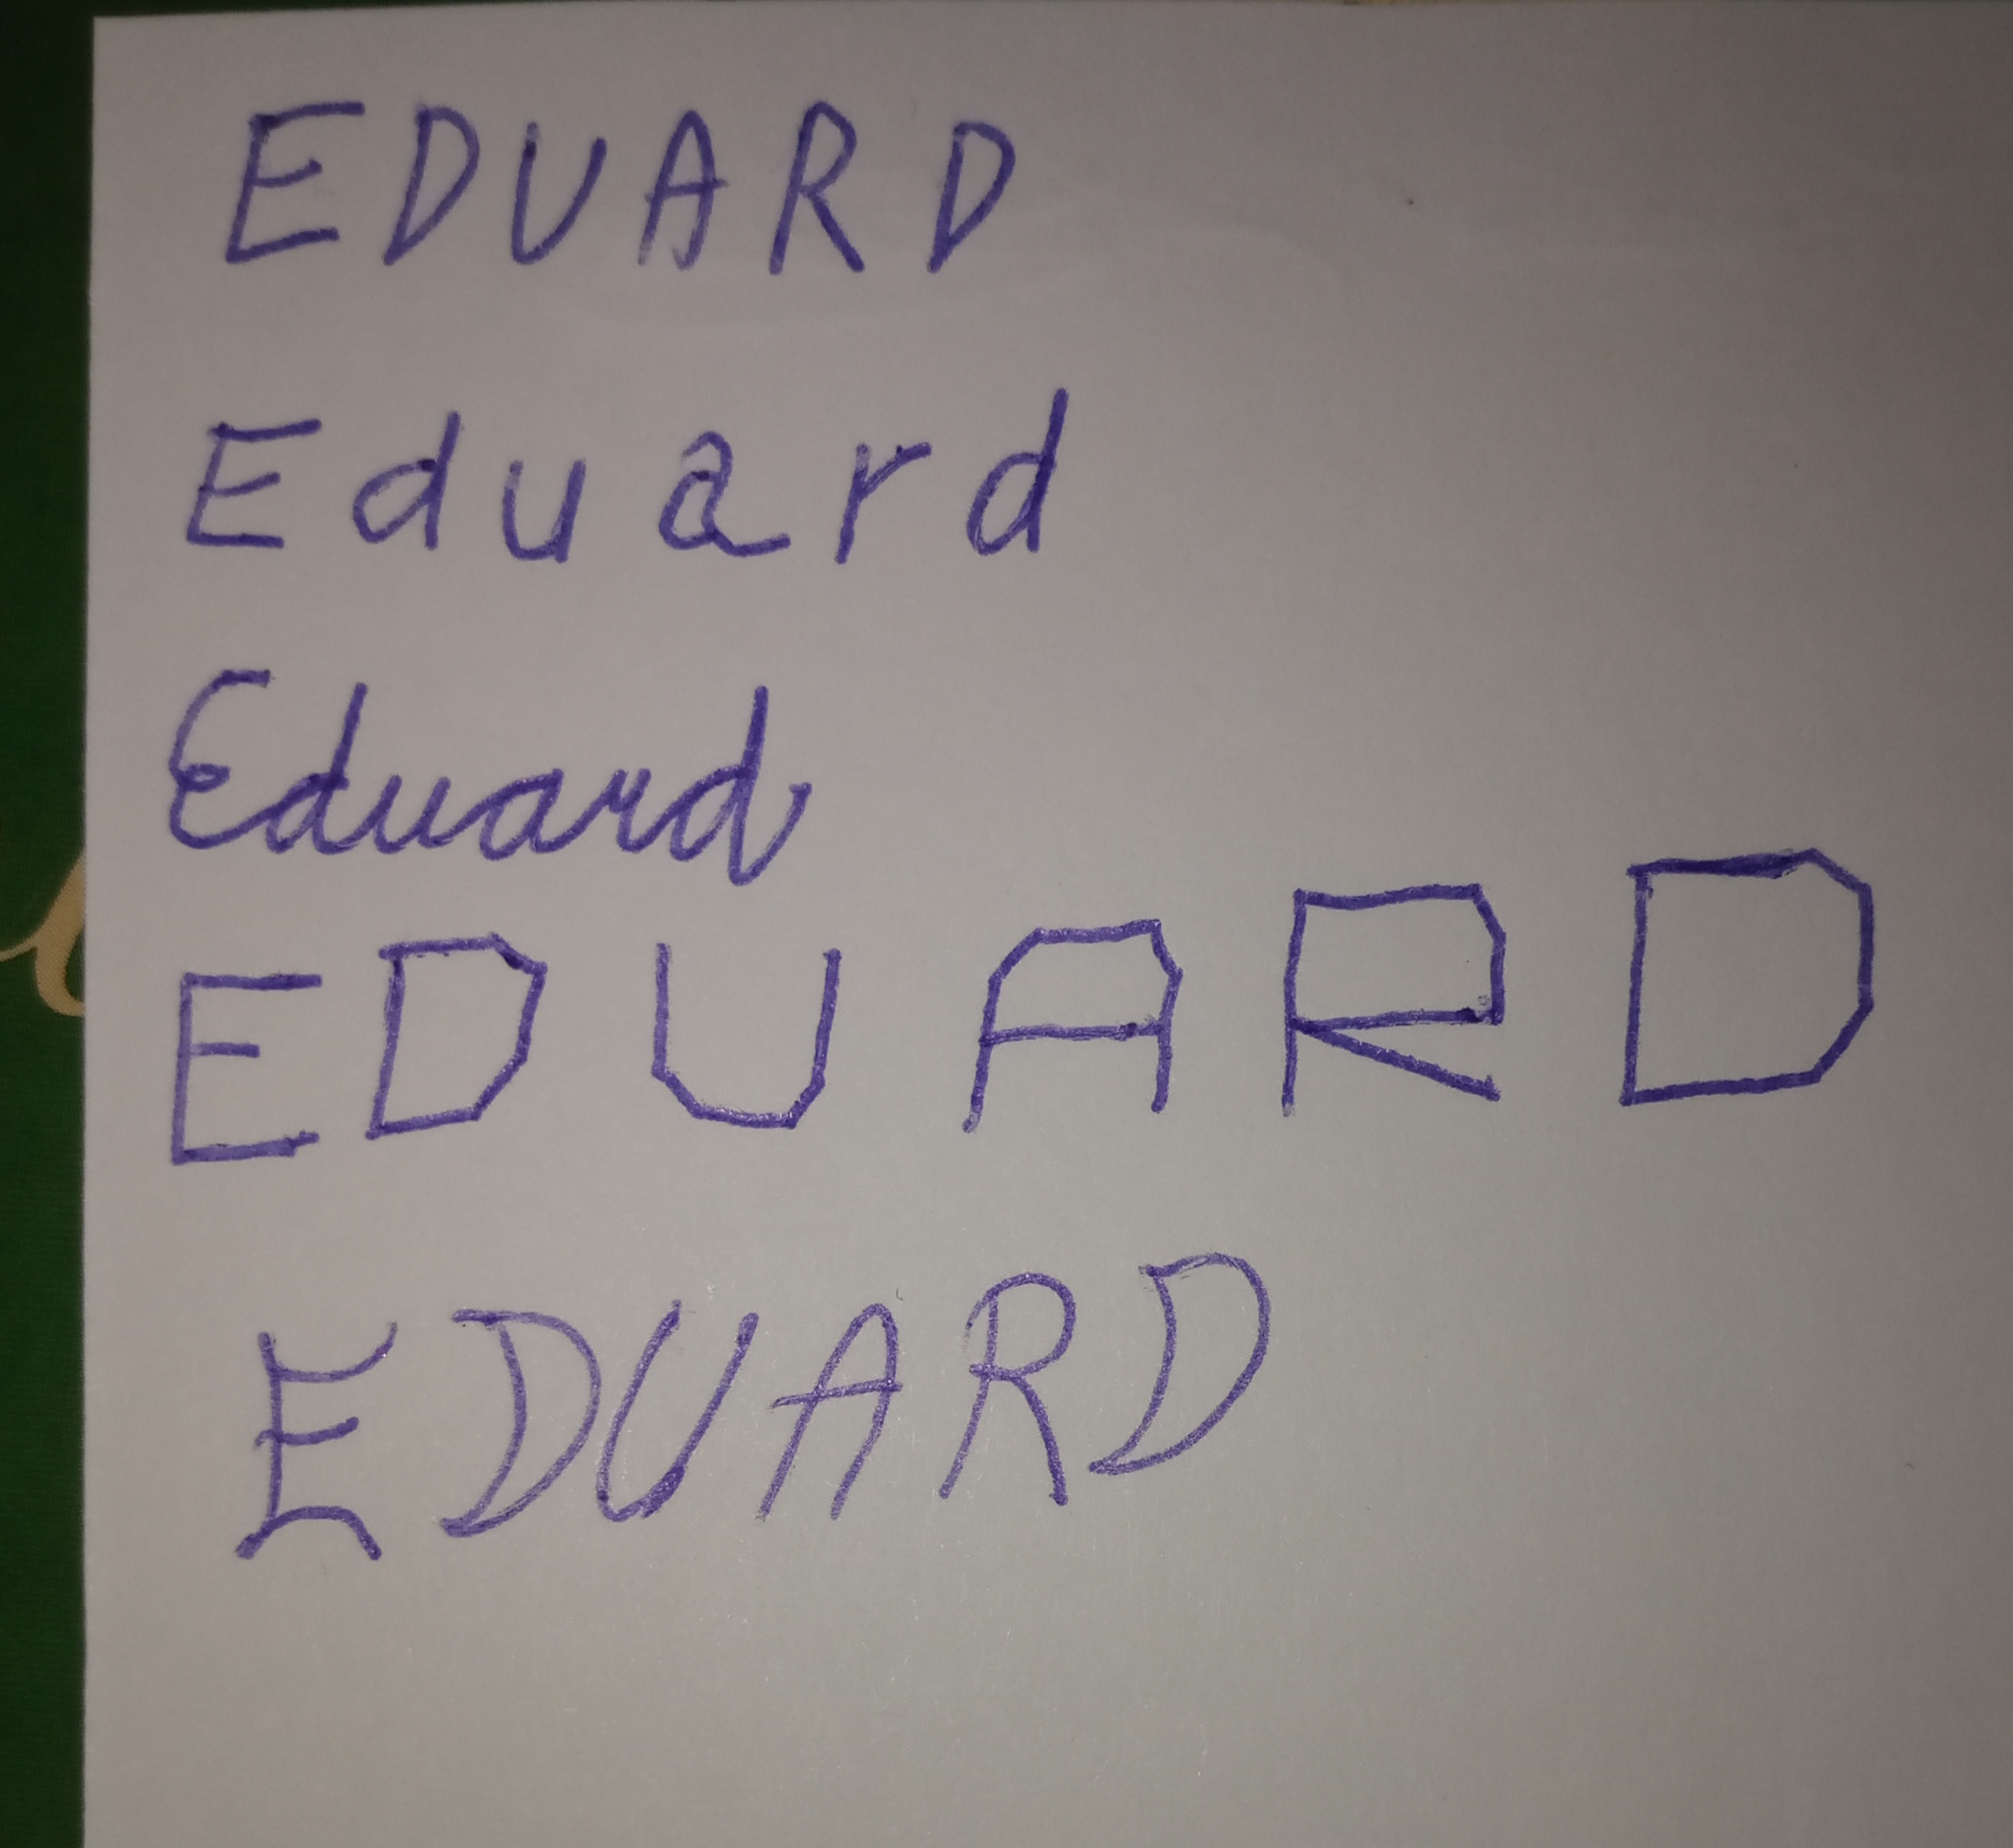 EDUARD
Eduard
Eduard
EDUARD
EDUARD